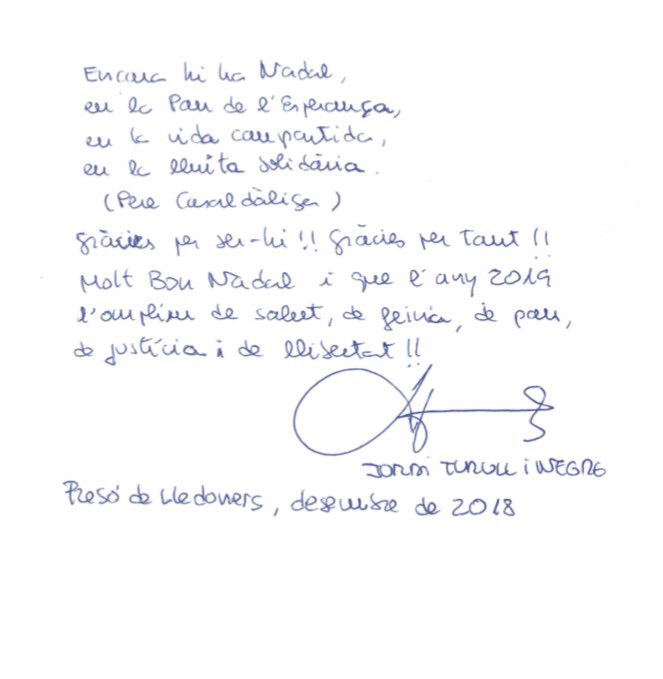 Encara hi ha Nadal,
en la Pau de l'Esperança,
en la vida compartida,
en la lluita solidària.
(Pere Casaldàliga)
Gràcies per ser-hi!! Gràcies per tant!!
Molt Bon Nadal i que l'any 2019
l'omplim de salut, de feina, de pau,
de justícia i de llibertat!!
JORDI TURULL i NEGRE
Presó de Lledoners, desembre de 2018